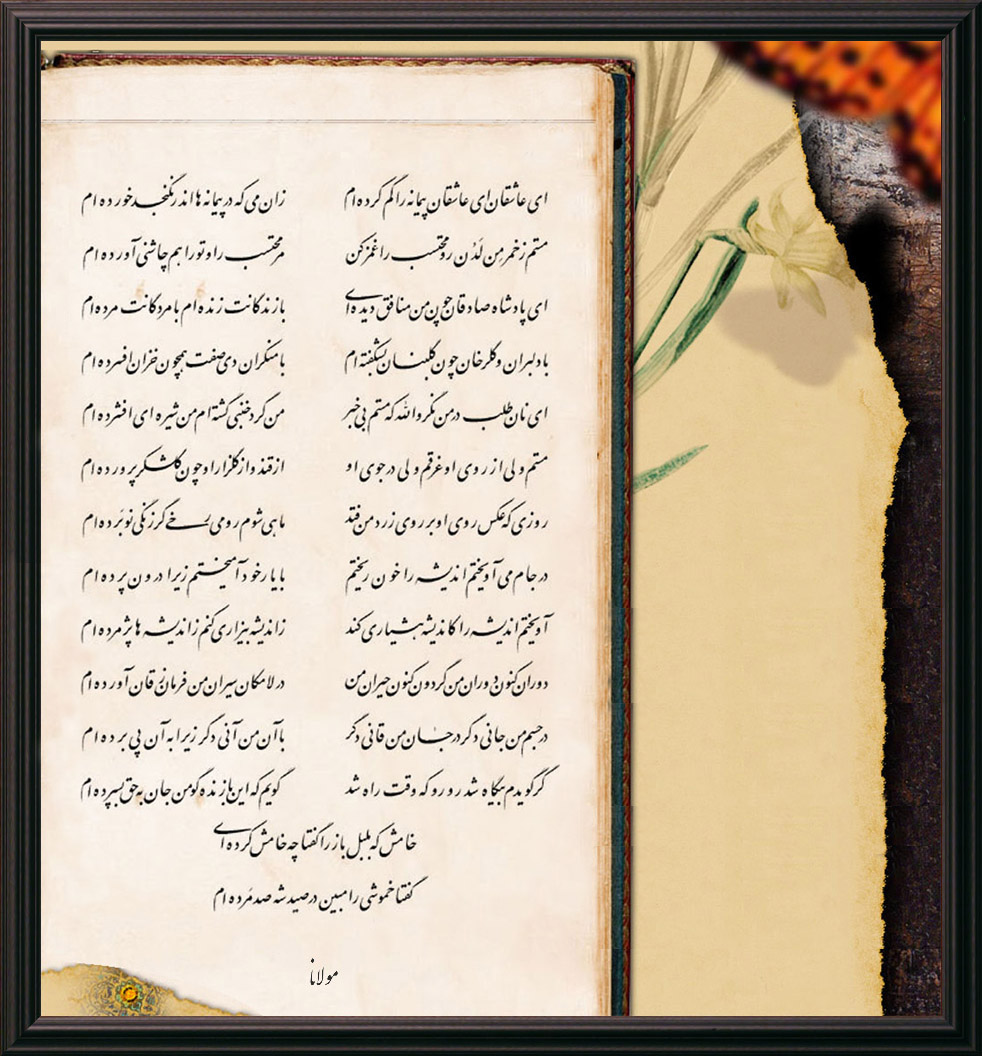 ای عاشقان ای عاشقان پیمانه را گم کرده ام زان می که در پیمانه ها اندر نگنجد خورده ام
مستم ز خمر من لدن رو محتسب را غمز کن مر محتسب را و تو را هم چاشنی آورده ام
ای پادشاه صادقان چون من منافق دیده ای با زندگانت زنده ام با مردگانت مرده ام
با دلبران و گلرخان چون گلبنان بشکفته ام با منکران دی صفت همچون خزان افسرده ام
ای نان طلب در من نگر والله که مستم بی خبر من گرد خنبی گشته ام من شیره ای افشرده ام
مستم ولی از روی او غرقم ولی در جوی او از قند و از گلزار او چون گلشکر پرورده ام
روزی که عکس روی او بر روی زرد من فتد ماهی شوم رومی رخی گر زنگی نوبرده ام
در جام می آویختم اندیشه را خون ریختم با یار خود آمیختم زیرا درون پرده ام
آویختم اندیشه را کاندیشه هشیاری کند ز اندیشه بیزاری کنم ز اندیشه ها پژمرده ام
دوران کنون دوران من گردون کنون حیران من در لامکان سیران من فرمان ز قان آورده ام
در جسم من جانی دگر در جان من قانی دگر با آن من آنی دگر زیرا به آن پی برده ام
گر گویدم بیگاه شد رو رو که وقت راه شد گویم که این با زنده گو من جان به حق بسپرده ام
خامش که بلبل باز را گفتا چه خامش کرده ای
گفتا خموشی را مبین در صید شه صد مرده ام
مولانا